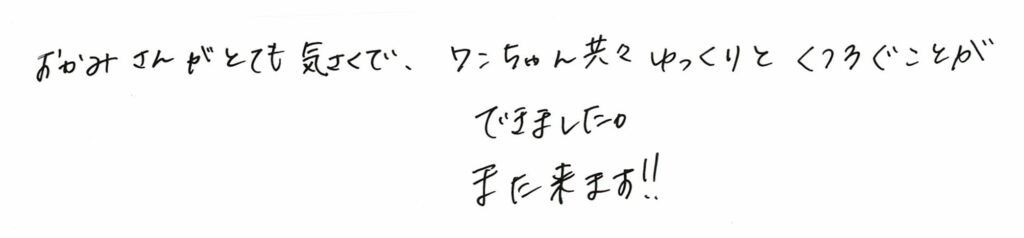 おかみさんがとても気さくで、ワンちゃん共々ゆっくりとくつろぐことが
できました。
また来ます!!